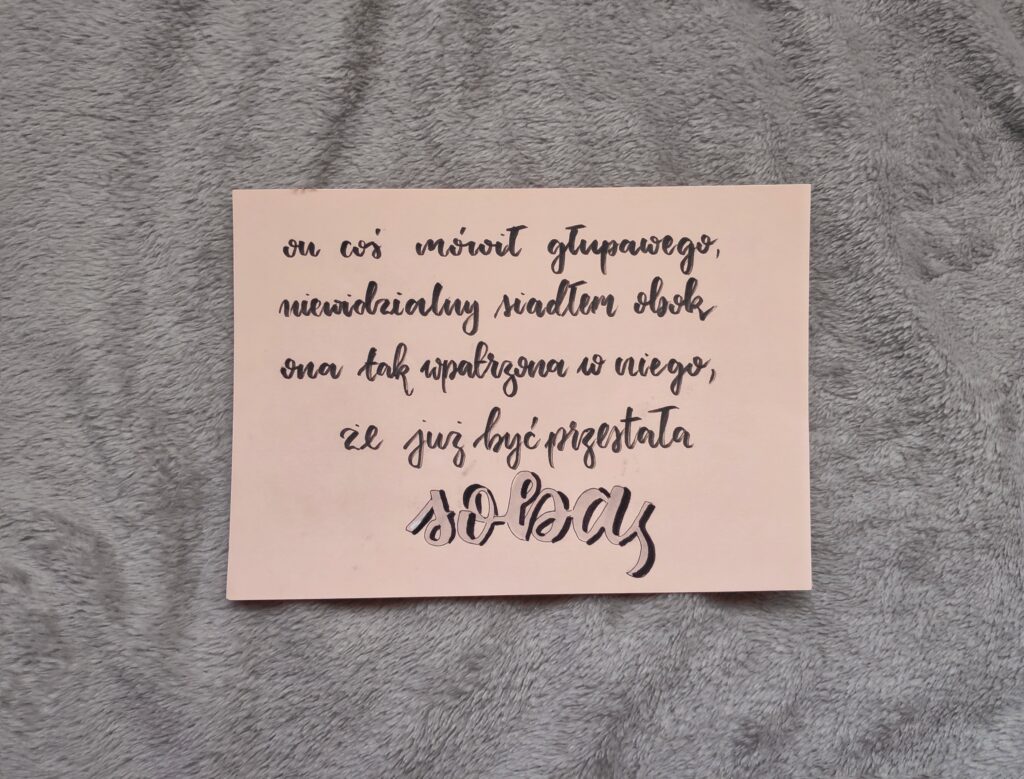 on coś mówił głupawego,
niewidzialny siadłem obok
ona tak wpatrzona w niego,
że już być przestała
sobą